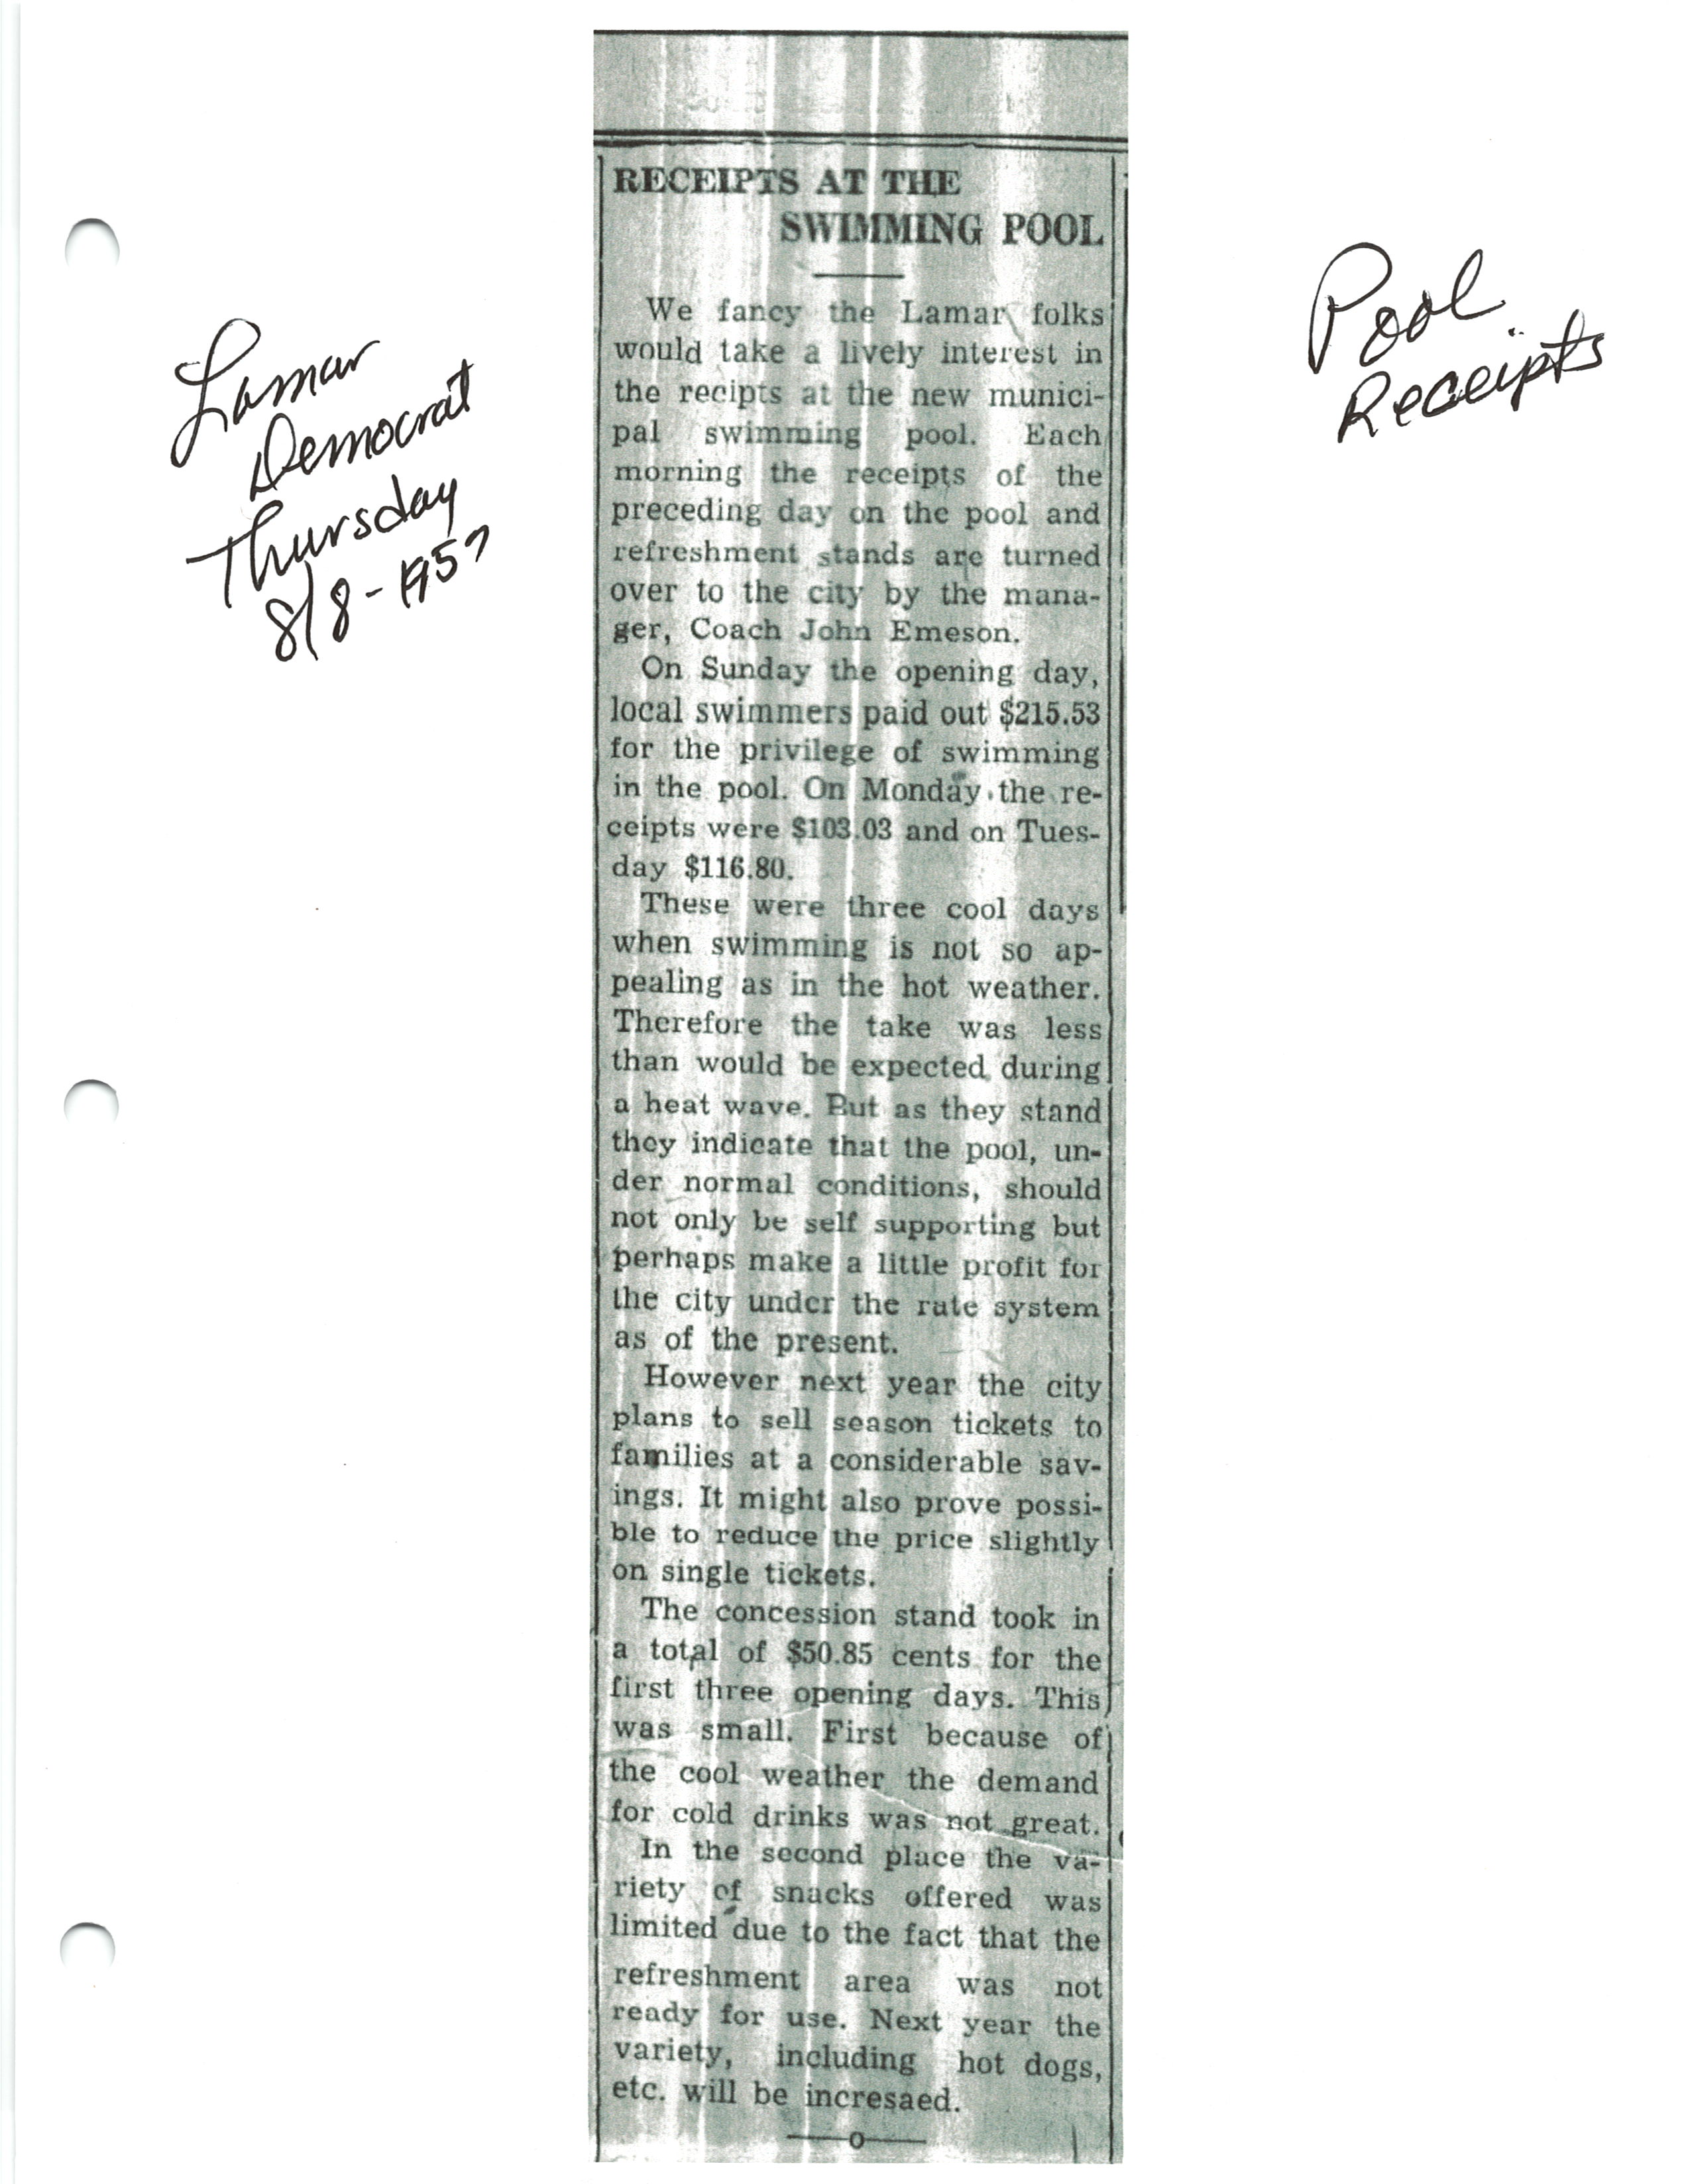 Lamar
Democrat
Thursday
8/8-1957
Pool
Receipts
RECEIPTS AT THE
SWIMMING POOL
We fancy the Lamar folks
would take a lively interest in
the recipts at the new munici-
pal swimming pool. Each
morning the receipts of the
preceding day on the pool and
refreshment stands are turned
over to the city by the mana-
ger, Coach John Emeson.
On Sunday the opening day,
local swimmers paid out $215.53
for the privilege of swimming
in the pool. On Monday the re-
ceipts were $103.03 and on Tues-
day $116.80.
These were three cool days
when swimming is not so ap-
pealing as in the hot weather.
Therefore the take was less
than would be expected during
a heat wave. But as they stand
they indicate that the pool, un-
der normal conditions, should
not only be self supporting but
perhaps make a little profit for
the city under the rate system
as of the present.
However next year the city
plans to sell season tickets to
families at a considerable sav-
ings. It might also prove possi-
ble to reduce the price slightly
on single tickets.
The concession stand took in
a total of $50.85 cents for the
first three opening days. This
was small. First because of
the cool weather the demand
for cold drinks was not great.
In the second place the va-
riety of snacks offered was
limited due to the fact that the
refreshment area was not
ready for use. Next year the
variety, including hot dogs,
etc. will be incresaed.
—o—